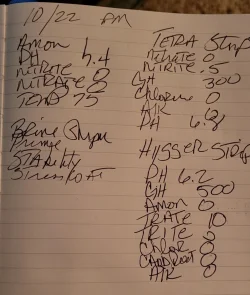 10/22 PM
Amon 1
PH 6.4
NITRITE 0
NITRATE 0
TEMP 75
Brine
Prime
STABility
TETRA Strip
NITRATE 0
NITRITE .5
GH 300
Chlorine 0
AlK 0
PH 6.8
STRIP
PH 6.2
GH 500
Amon 0
TRATE 10
TRITE 0
Chlor 0
AlK 0